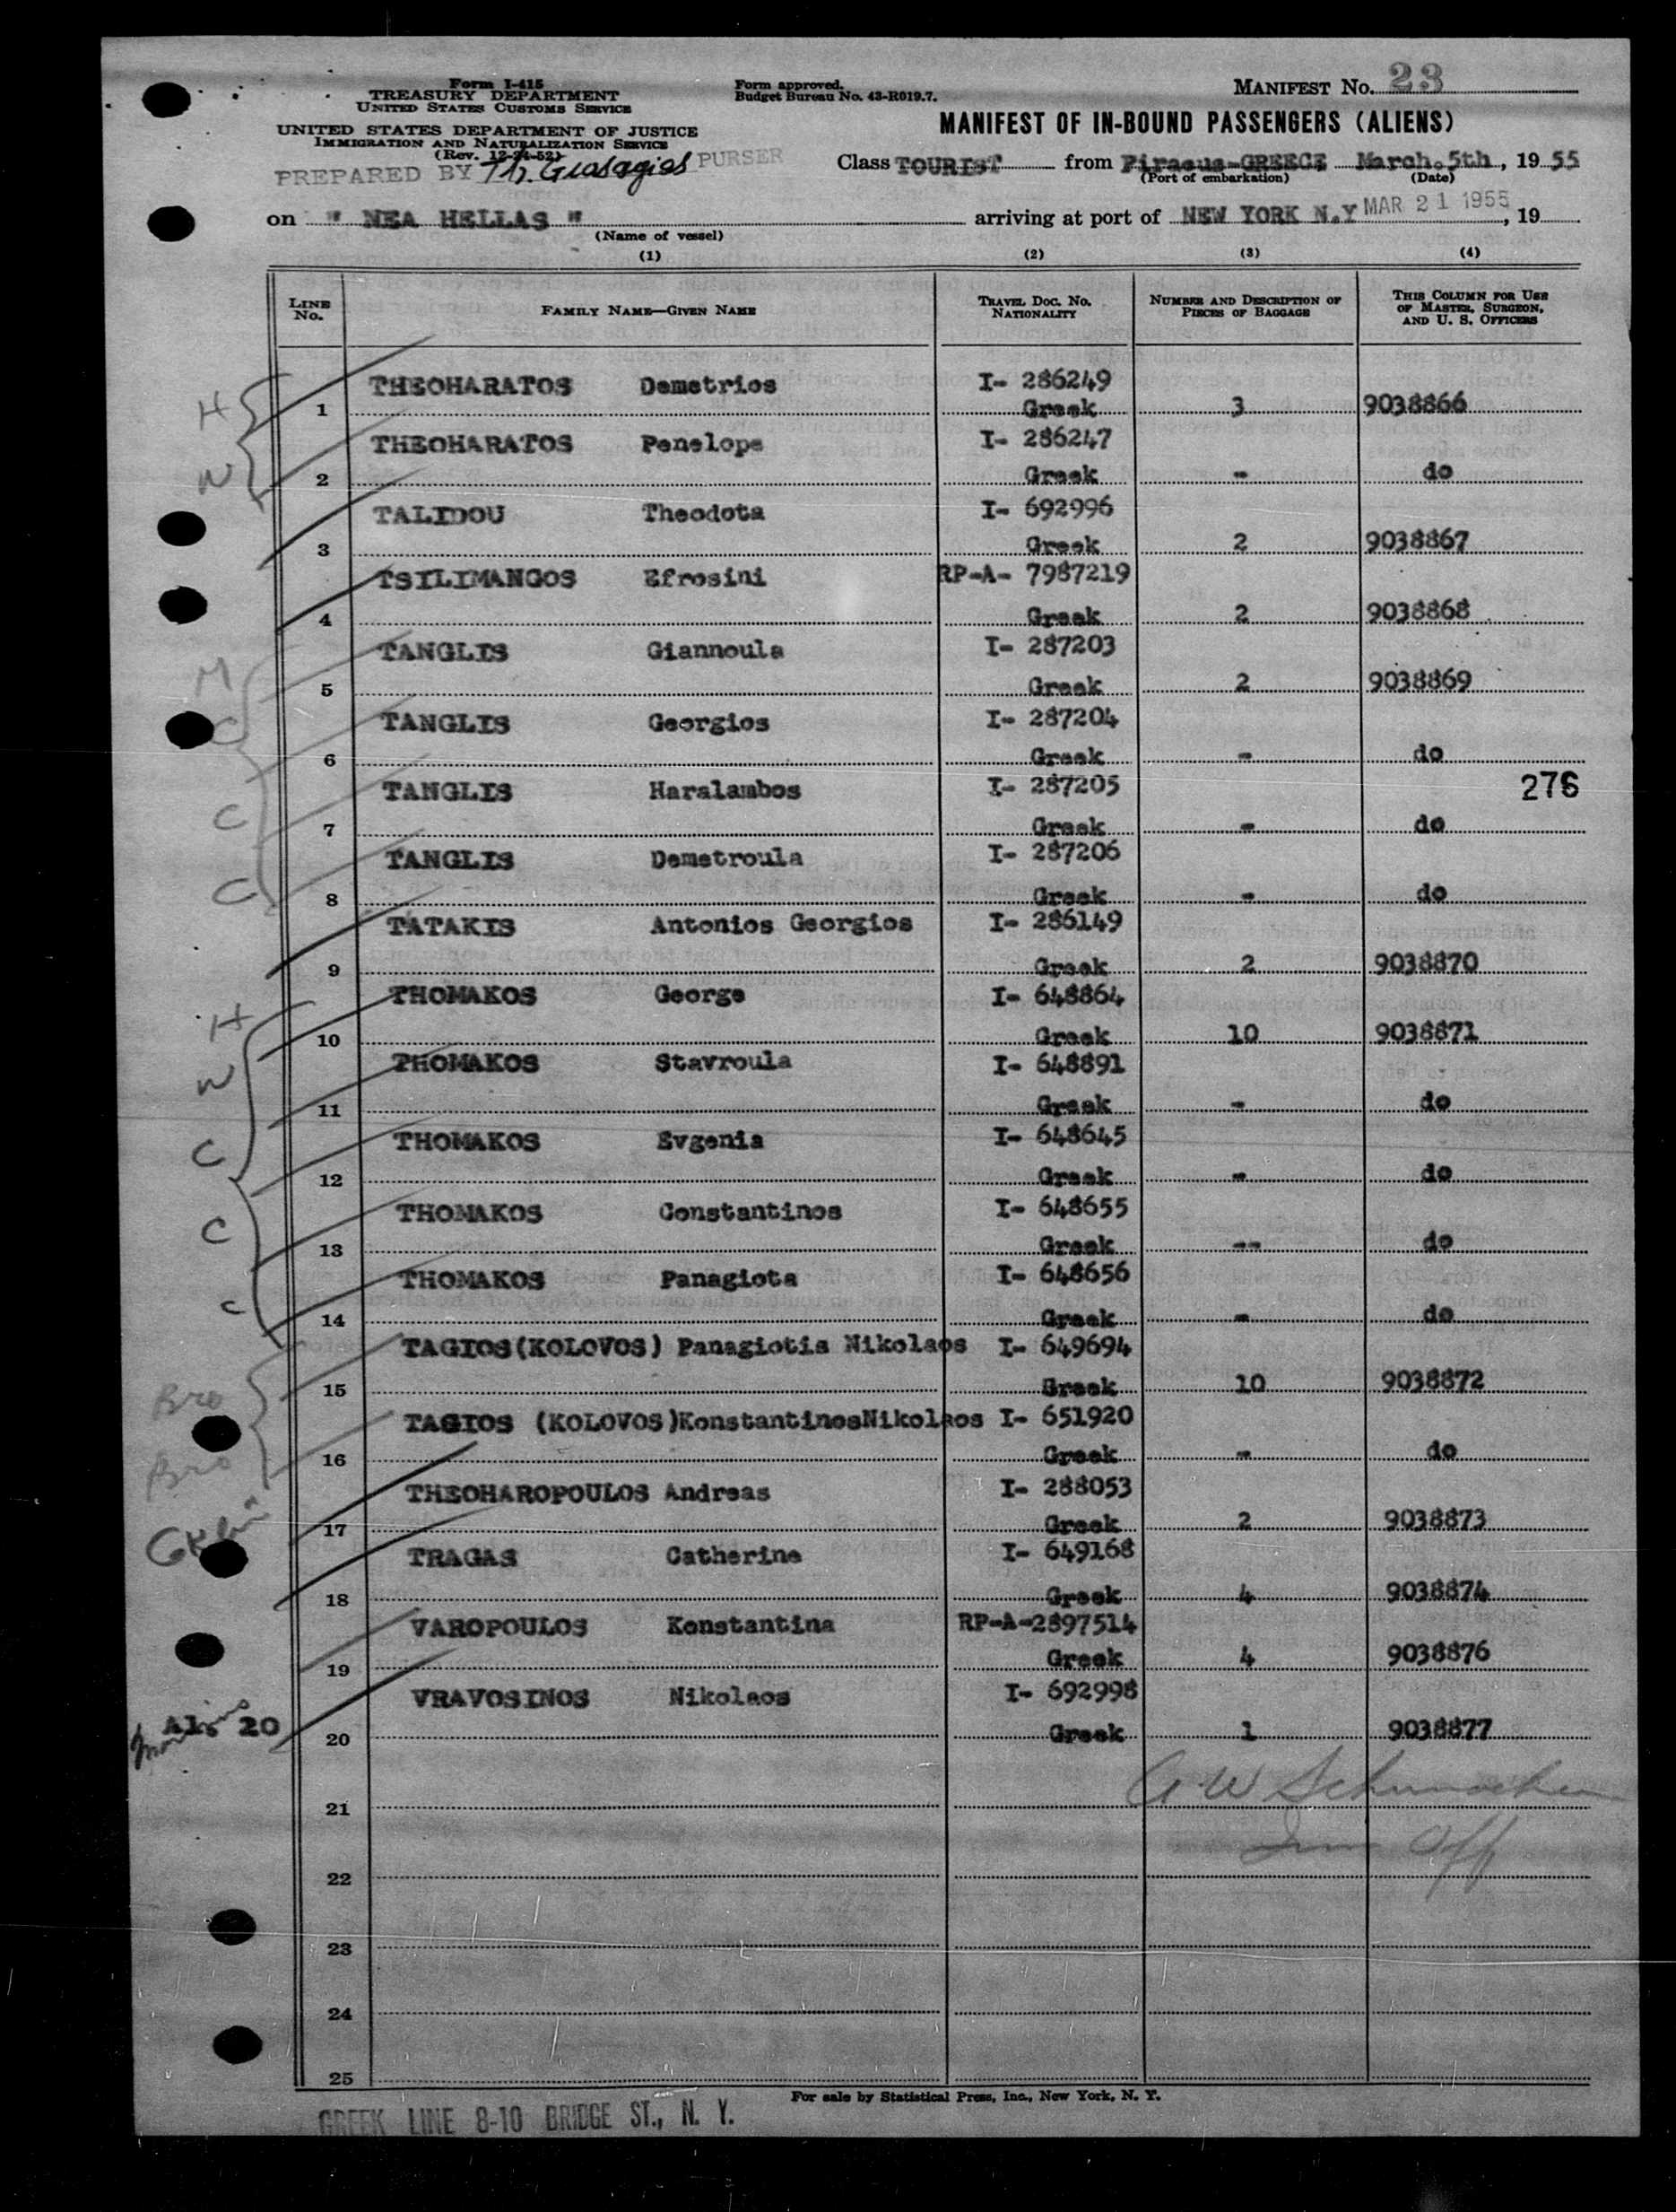 Form I-415
TREASURY DEPARTMENT
UNITED STATES CUSTOMS SERVICE
UNITED STATES DEPARTMENT OF JUSTICE
IMMIGRATION AND NATURALIZATION SERVICE
(Rev. 12-24-52)
PREPARED BY Th. PURSER
Form approved.
Budget Bureau No. 43-R019.7.
MANIFEST NO. 23
MANIFEST OF IN-BOUND PASSENGERS (ALIENS)
Class TOURIST from Piraeus-GREECE March.5th, 19 55
(Port of embarkation) (Date)
on " NEA HELLAS " arriving at port of NEW YORK N.Y MAR 21 1955, 19
(Name of vessel)
(1) (2) (3) (4)
LINE NO. FAMILY NAME—GIVEN NAME TRAVEL DOC. NO. NATIONALITY NUMBER AND DESCRIPTION OF PIECES OF BAGGAGE THIS COLUMN FOR USE OF MASTER, SURGEON, AND U. S. OFFICERS
H THEOHARATOS Demetrios I- 286249
1 Greek 3 9038866
THEOHARATOS Penelope I- 286247
W 2 Greek - do
TALIDOU Theodota I- 692996
3 Greek 2 9038867
TSILIMANGOS Efrosini RP-A- 7987219
4 Greek 2 9038868
TANGLIS Giannoula I- 287203
M 5 Greek 2 9038869
C TANGLIS Georgios I- 287204
6 Greek - do
TANGLIS Haralambos I- 287205 276
C 7 Greek - do
TANGLIS Demetroula I- 287206
C 8 Greek - do
TATAKIS Antonios Georgios I- 286149
9 Greek 2 9038870
THOMAKOS George I- 648864
H 10 Greek 10 9038871
W THOMAKOS Stavroula I- 648891
11 Greek - do
C THOMAKOS Evgenia I- 648645
12 Greek - do
C THOMAKOS Constantinos I- 648655
13 Greek -- do
THOMAKOS Panagiota I- 648656
C 14 Greek - do
TAGIOS(KOLOVOS) Panagiotis Nikolaos I- 649694
Bro 15 Greek 10 9038872
TAGIOS (KOLOVOS)KonstantinosNikolaos I- 651920
Bro 16 Greek - do
THEOHAROPOULOS Andreas I- 288053
17 Greek 2 9038873
TRAGAS Catherine I- 649168
18 Greek 4 9038874
VAROPOULOS Konstantina RP-A-2897514
19 Greek 4 9038876
VRAVOSINOS Nikolaos I- 692998
20 20 Greek 1 9038877
A.W Schumacher
21
Imm Off
22
23
24
25
For sale by Statistical Press, Inc., New York, N. Y.
GREEK LINE 8-10 BRIDGE ST., N. Y.